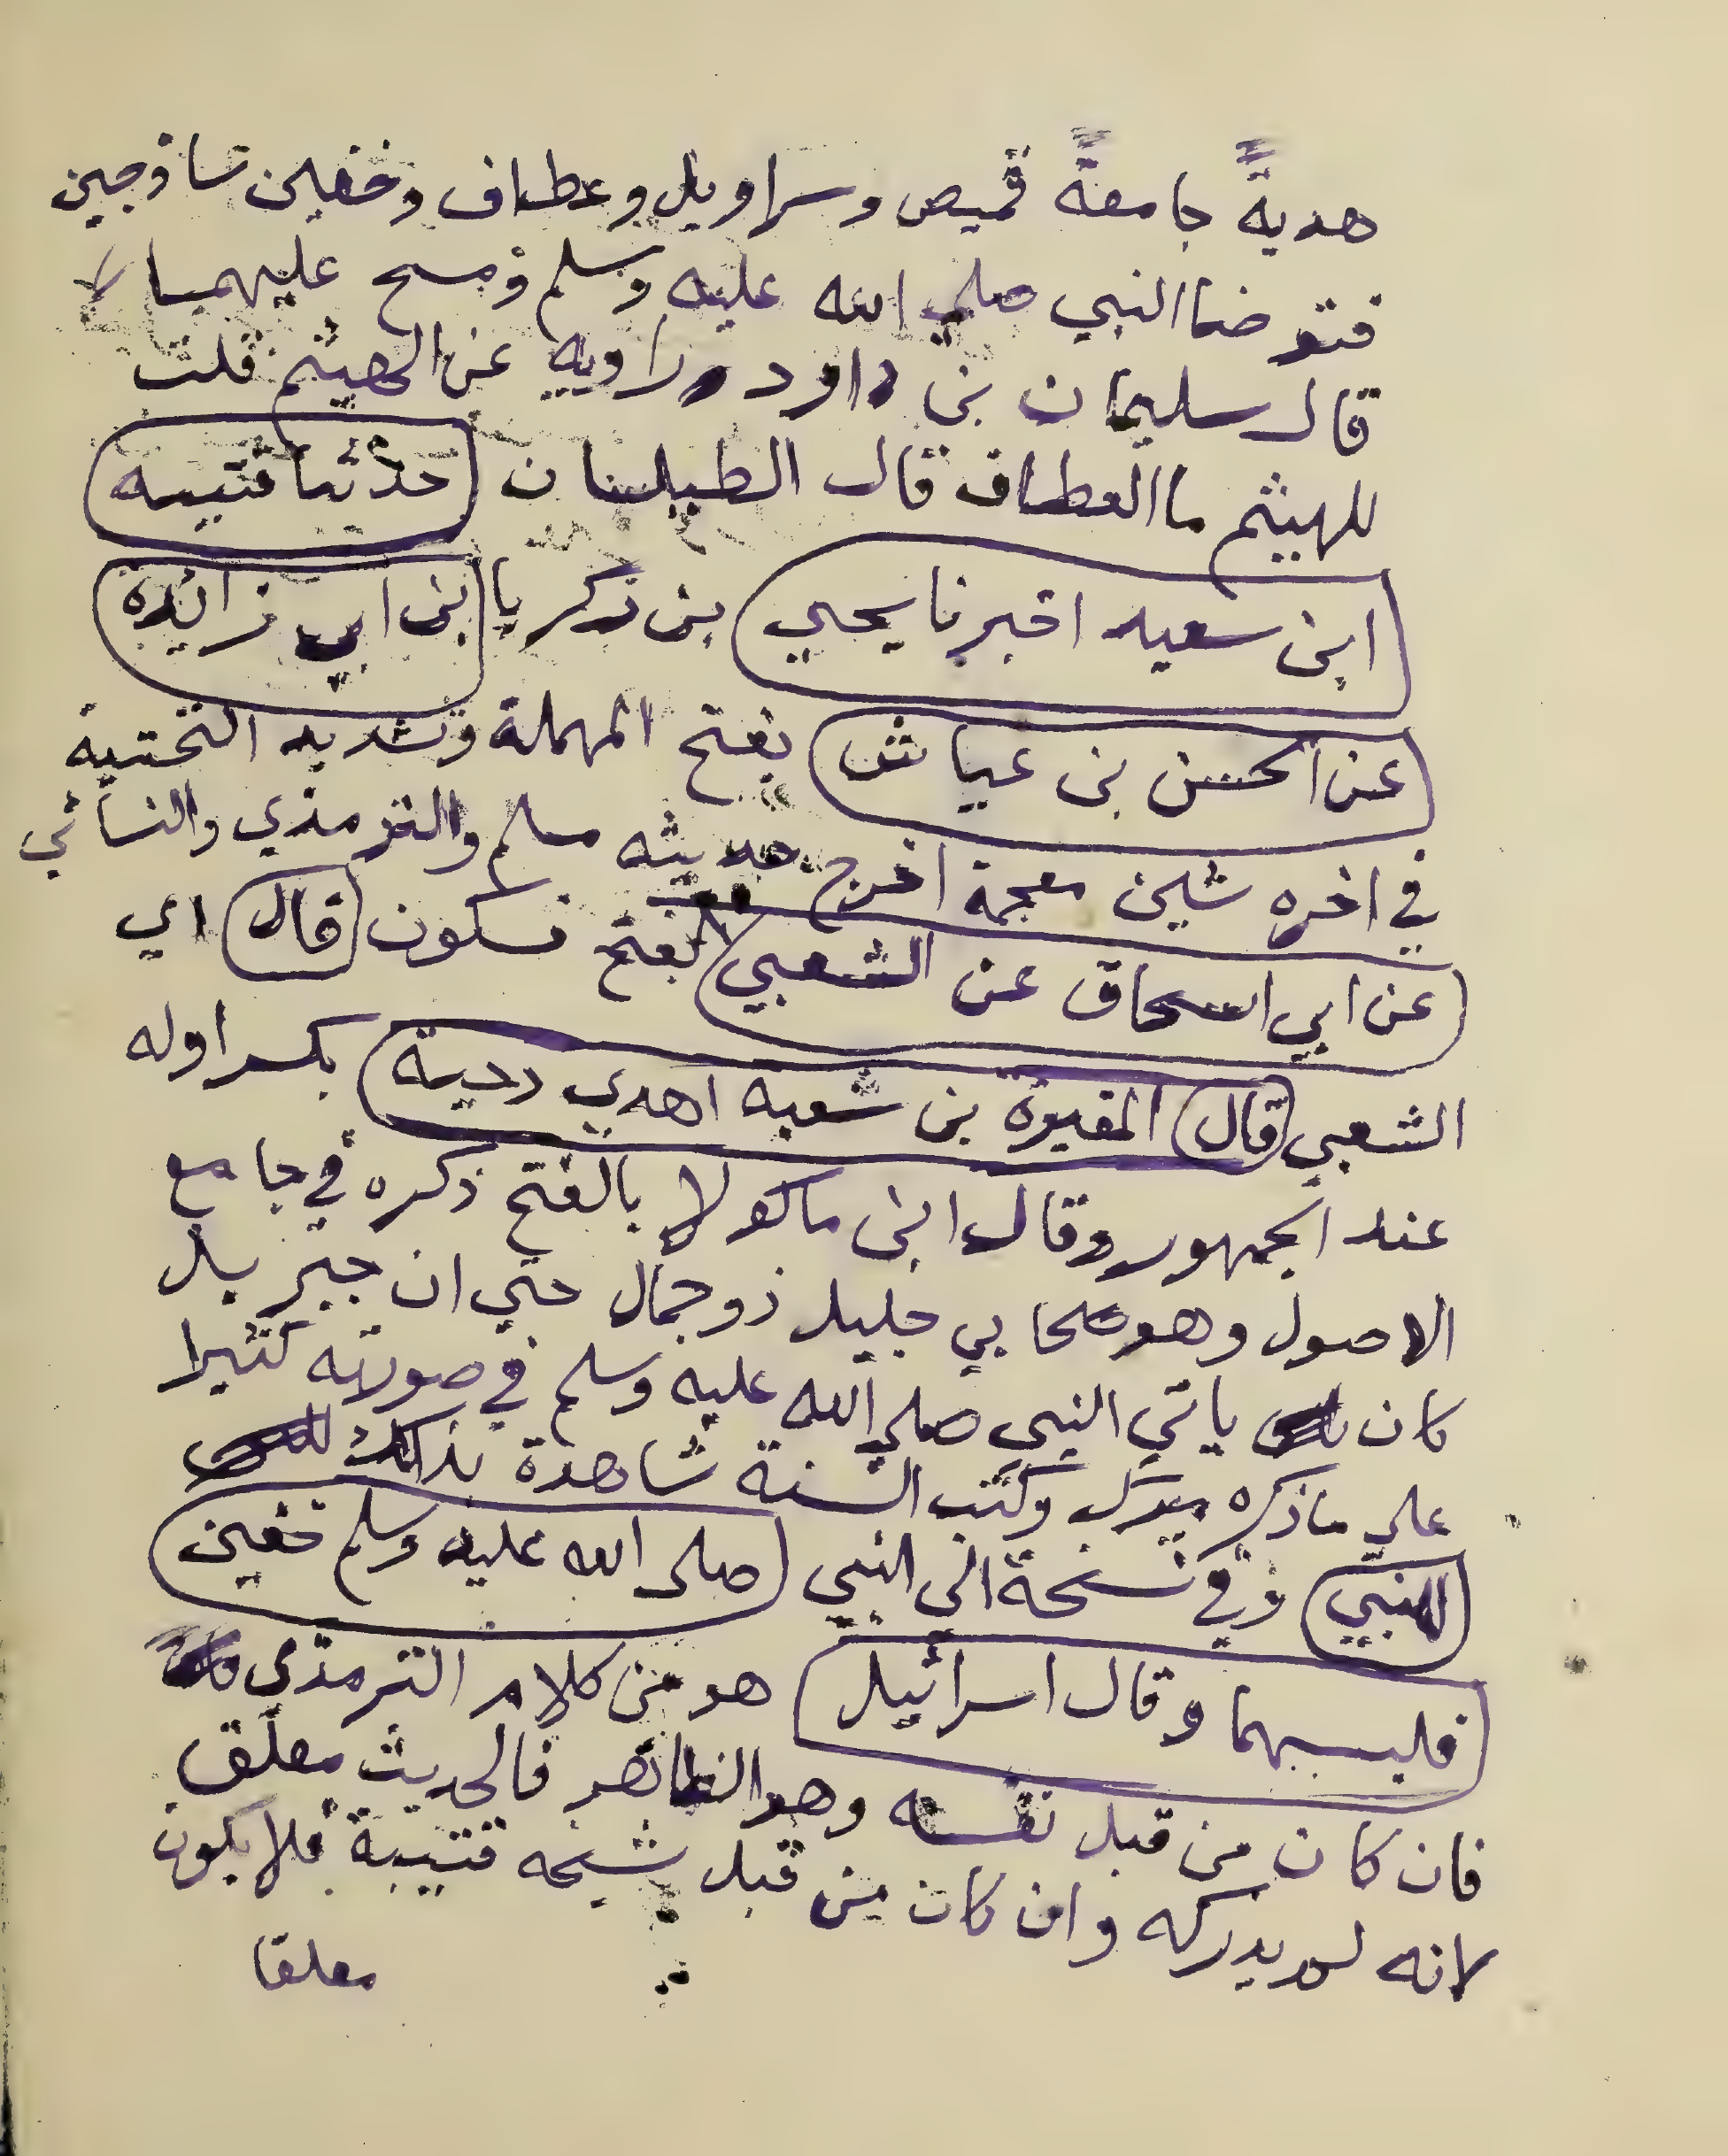 هديةً جامعةً قميص وسراويل وعطاف وخفين ساذجين
فتوضا النبي صلي الله عليه وسلم ومسح عليهما
قال سليمان بن داود راويه عن الهيثم قلت
للهيثم ما العطاف قال الطيلسان حدثنا قتيبه
ابن سعيد اخبرنا يحيي بن زكريا بن ابي زائدة
عن الحسن بن عياش بفتح المهملة وتشديد التحتية
في اخره شين معجمة اخرج حديثه مسلم والترمذي والنسائي
عن ابي اسحاق عن الشعبي بفتح فسكون قال اي
الشعبي قال المغيرة بن شعبة اهدي دحية بكسر اوله
عند الجمهور وقال ابن ماكولا بالفتح ذكره في جامع
الاصول وهو صحابي جليل ذو جمال حتي ان جبريل
كان ياتي النبي صلي الله عليه وسلم في صورته كثيرا
علي ما ذكره ميرك وكتب السنة شاهدة بذلك
للنبي وفي نسخة الى النبي صلى الله عليه وسلم خفين
فلبسهما وقال اسرائيل هو من كلام الترمذي
فان كان من قبل نفسه وهو الظاهر فالحديث معلق
لانه لم يدركه وان كان من قبل شيخه قتيبة فلا يكون
معلقا